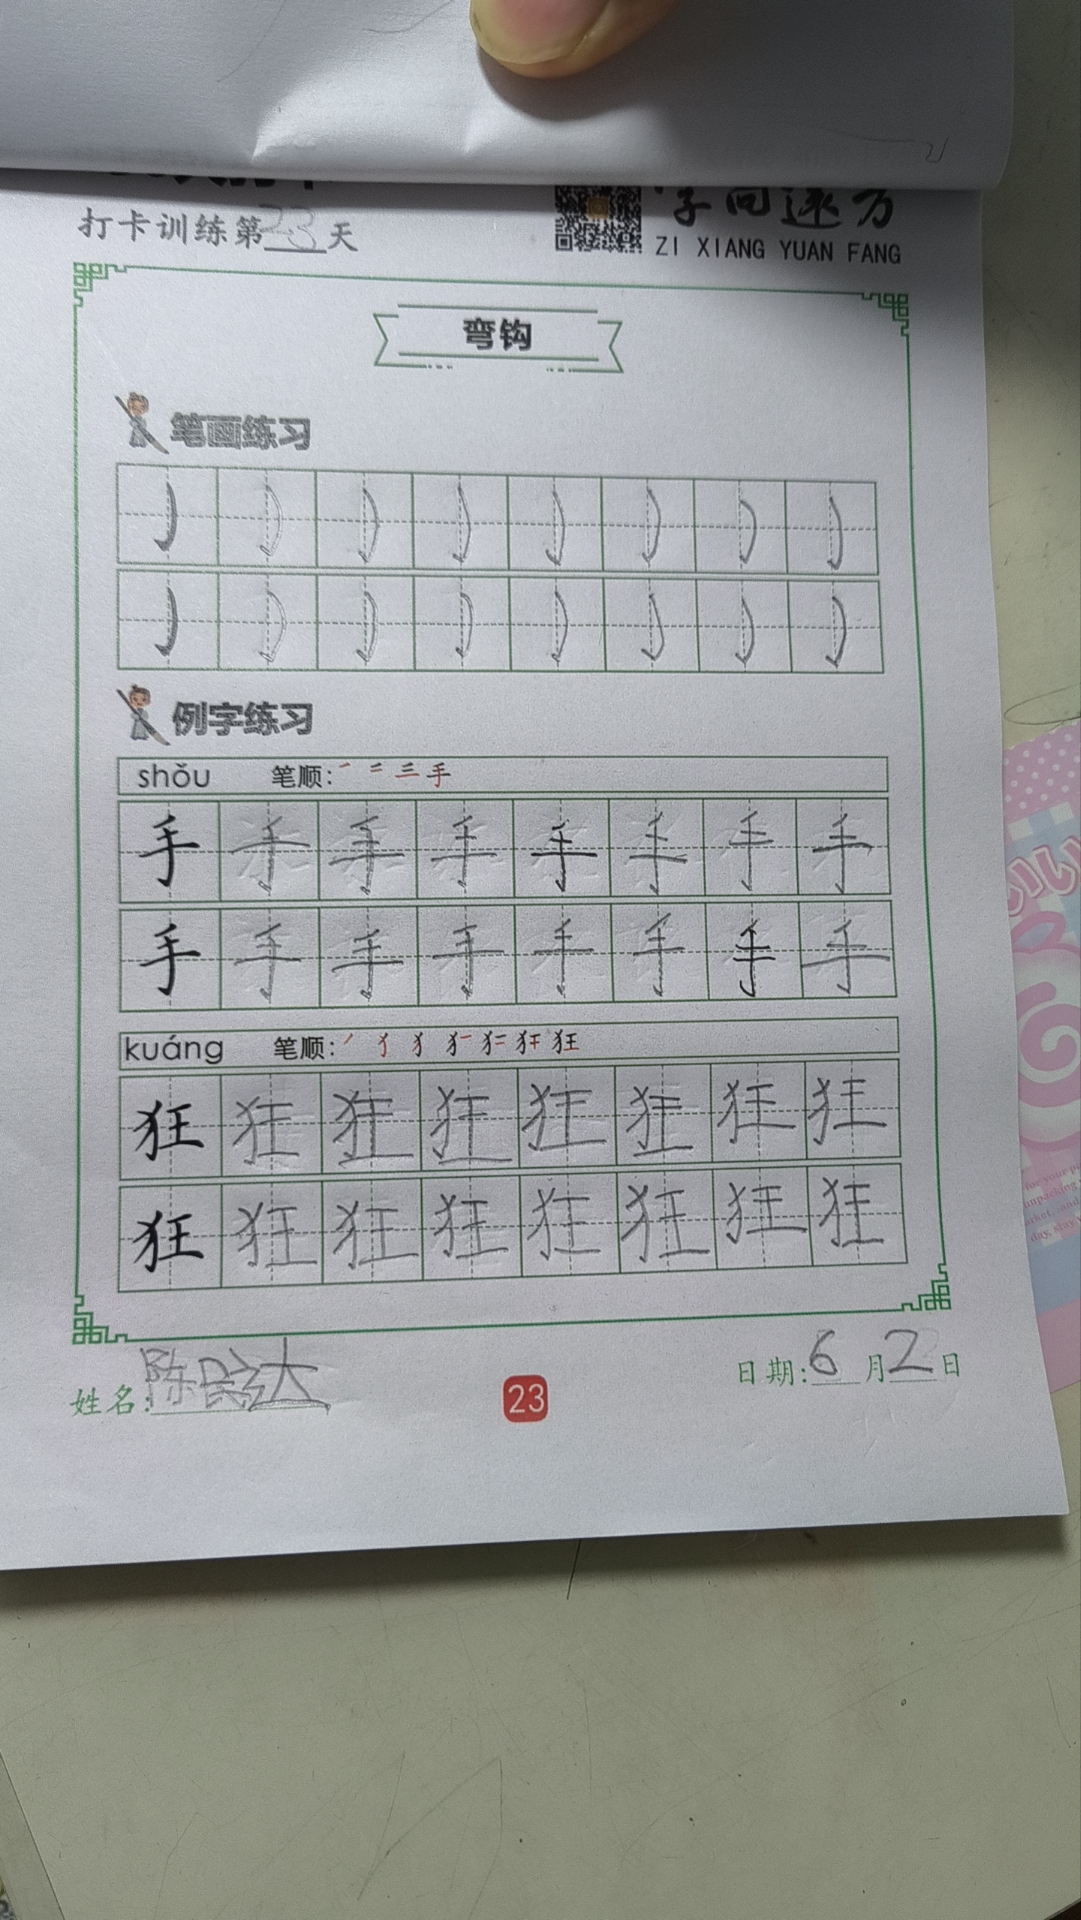 打卡训练第23天
字向远方
ZI XIANG YUAN FANG
弯钩
笔画练习
例字练习
shǒu 笔顺:
手 手 手 手 手 手 手 手
手 手 手 手 手 手 手 手
kuáng 笔顺:
狂 狂 狂 狂 狂 狂 狂 狂
狂 狂 狂 狂 狂 狂 狂 狂
姓名:陈民达
23
日期:6月2日